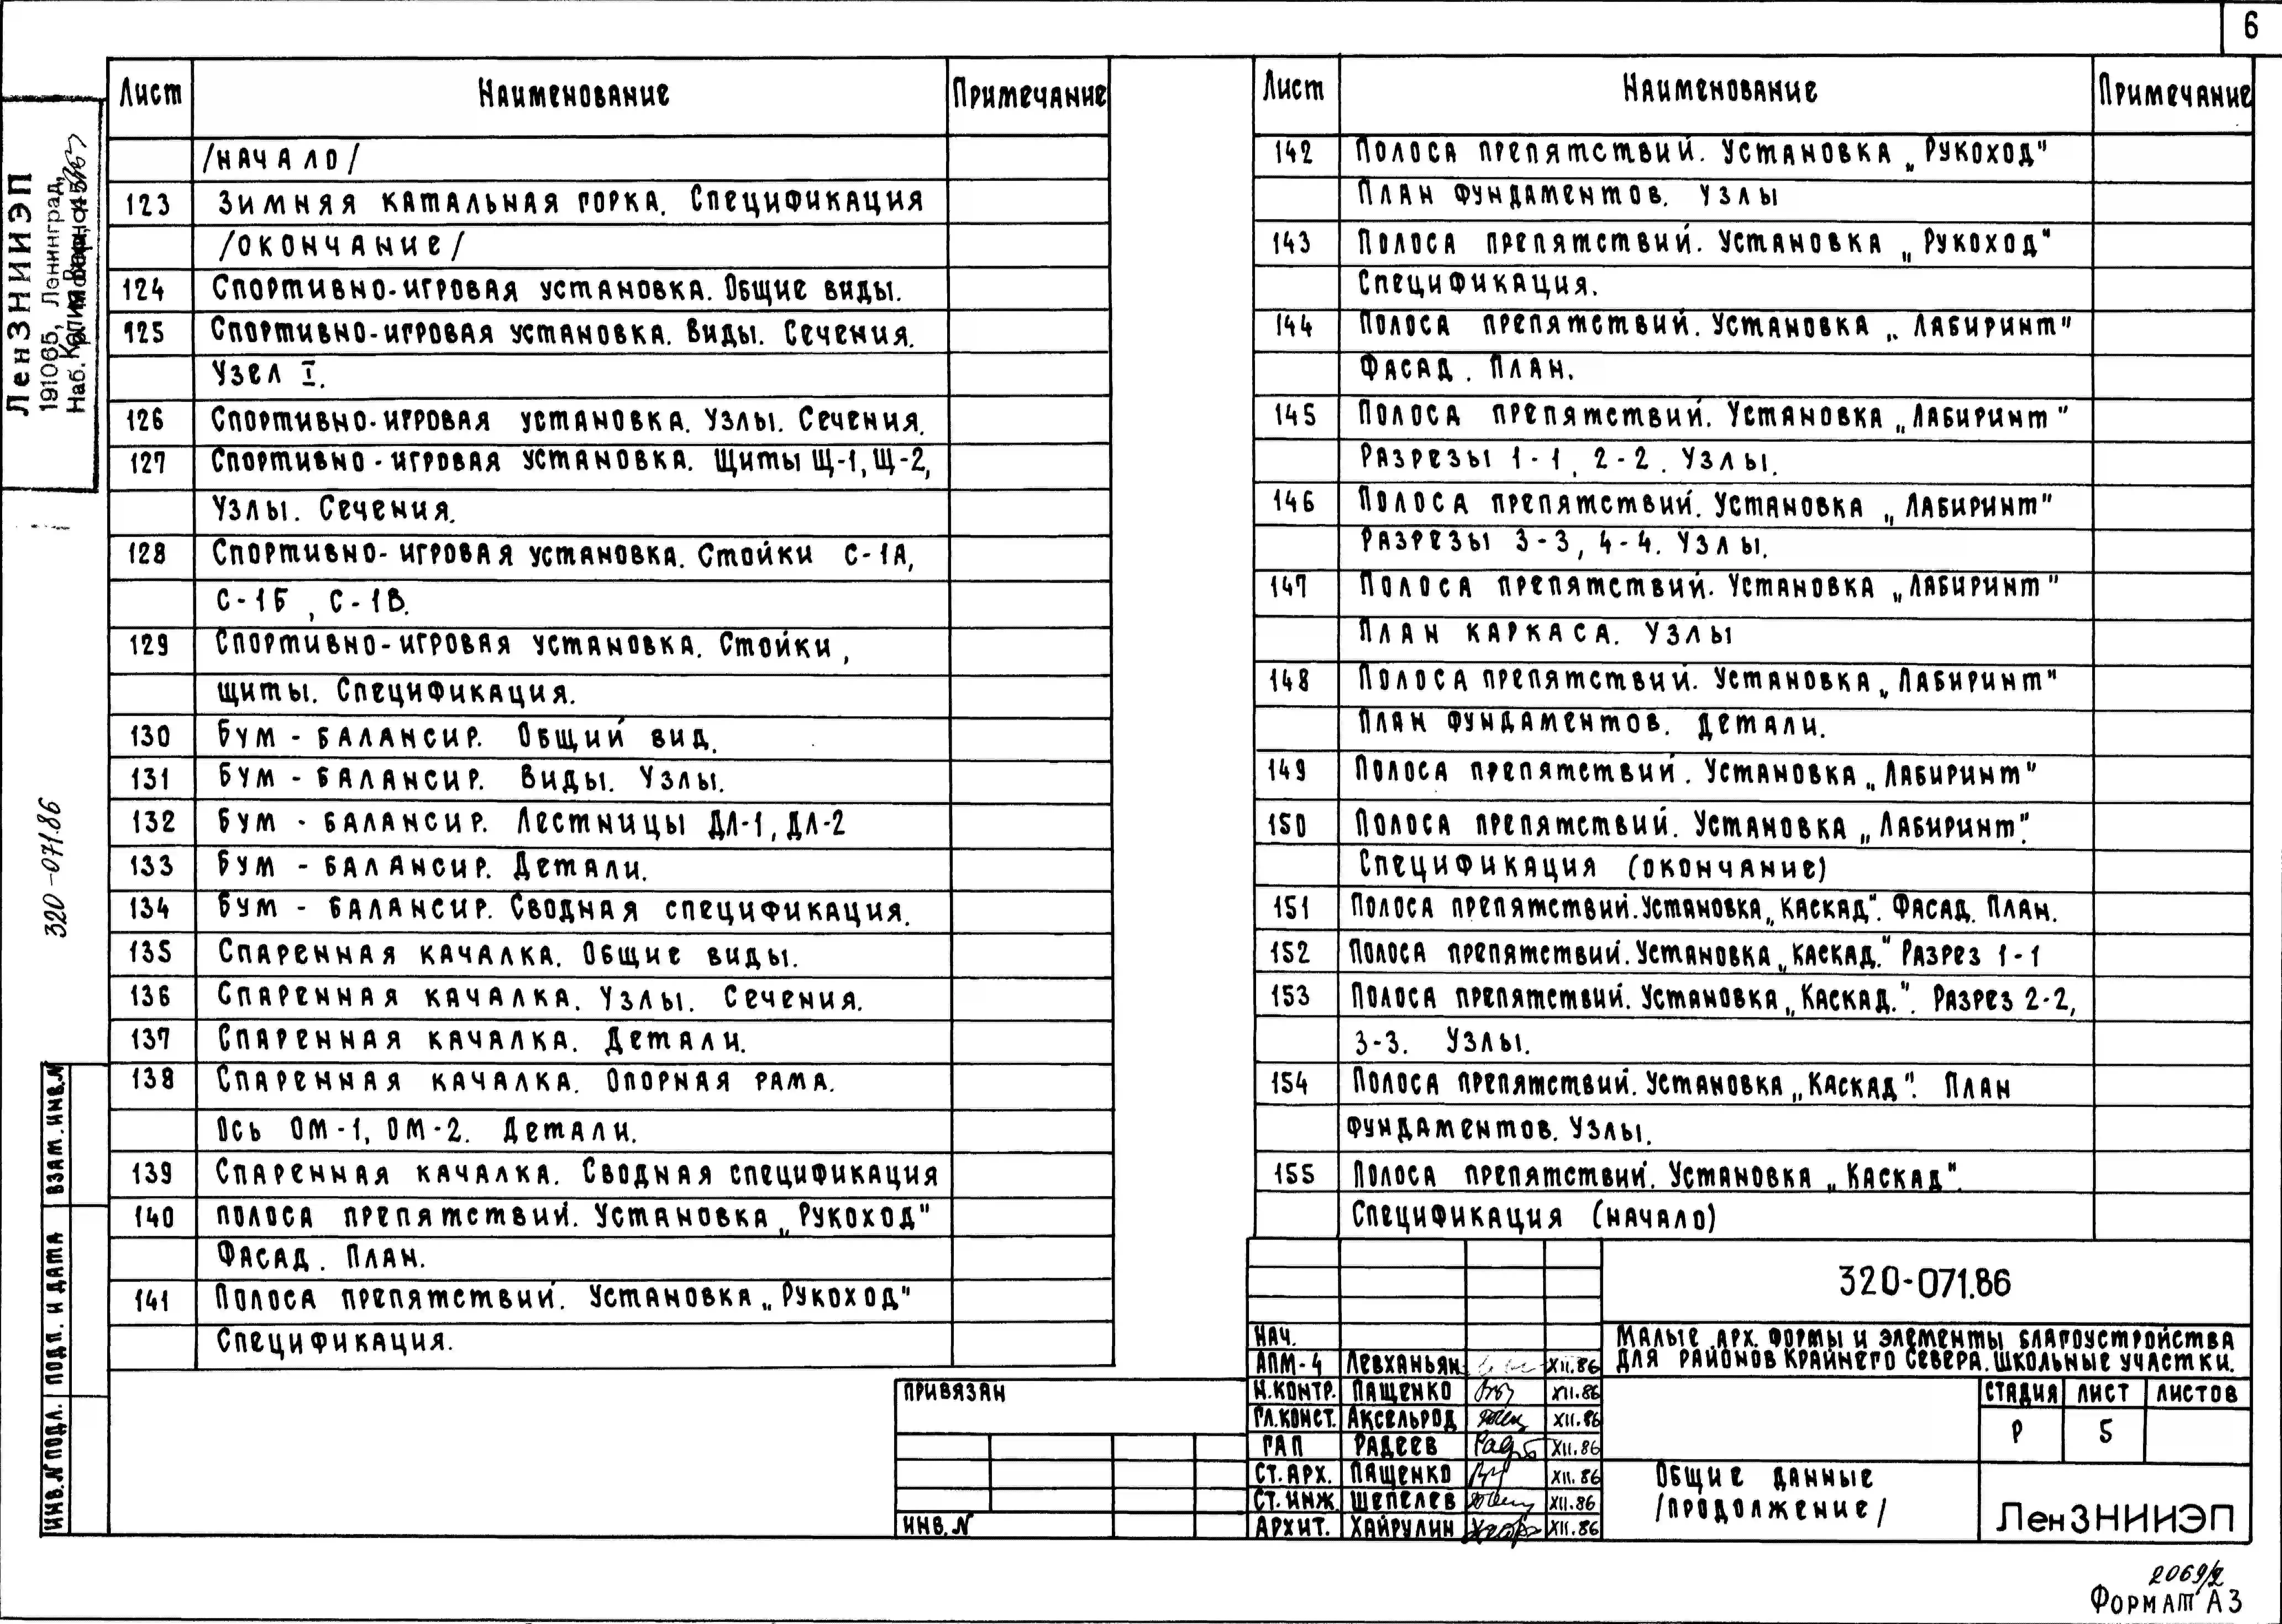 6
Лист Наименование Примечание
/начало/
123 Зимняя катальная горка. Спецификация
/окончание/
124 Спортивно-игровая установка. Общие виды.
125 Спортивно-игровая установка. Виды. Сечения.
Узел I.
126 Спортивно-игровая установка. Узлы. Сечения.
127 Спортивно-игровая установка. Щиты Щ-1, Щ-2,
Узлы. Сечения.
128 Спортивно-игровая установка. Стойки С-1А,
С-1Б, С-1В.
129 Спортивно-игровая установка. Стойки,
щиты. Спецификация.
130 Бум - балансир. Общий вид.
131 Бум - балансир. Виды. Узлы.
132 Бум - балансир. Лестницы ДЛ-1, ДЛ-2
133 Бум - балансир. Детали.
134 Бум - балансир. Сводная спецификация.
135 Спаренная качалка. Общие виды.
136 Спаренная качалка. Узлы. Сечения.
137 Спаренная качалка. Детали.
138 Спаренная качалка. Опорная рама.
Ось ОМ-1, ОМ-2. Детали.
139 Спаренная качалка. Сводная спецификация
140 полоса препятствий. Установка „Рукоход"
Фасад. План.
141 Полоса препятствий. Установка „Рукоход"
Спецификация.
Лист Наименование Примечание
142 Полоса препятствий. Установка „Рукоход"
План фундаментов. Узлы
143 Полоса препятствий. Установка „Рукоход"
Спецификация.
144 Полоса препятствий. Установка „Лабиринт"
Фасад. План.
145 Полоса препятствий. Установка „Лабиринт"
Разрезы 1-1, 2-2. Узлы.
146 Полоса препятствий. Установка „Лабиринт"
Разрезы 3-3, 4-4. Узлы.
147 Полоса препятствий. Установка „Лабиринт"
План каркаса. Узлы
148 Полоса препятствий. Установка „Лабиринт"
План фундаментов. Детали.
149 Полоса препятствий. Установка „Лабиринт"
150 Полоса препятствий. Установка „Лабиринт".
Спецификация (окончание)
151 Полоса препятствий. Установка „Каскад". Фасад. План.
152 Полоса препятствий. Установка „Каскад." Разрез 1-1
153 Полоса препятствий. Установка „Каскад.". Разрез 2-2,
3-3. Узлы.
154 Полоса препятствий. Установка „Каскад". План
фундаментов. Узлы.
155 Полоса препятствий. Установка „Каскад".
Спецификация (начало)
320-071.86
Малые арх. формы и элементы благоустройства
для районов Крайнего Севера. Школьные участки.
Нач.
АПМ-4 Левханьян XII.86
Н.контр. Пащенко XII.86
Гл.конст. Аксельрод XII.86
ГАП Радеев XII.86
Ст.арх. Пащенко XII.86
Ст.инж. Шепелев XII.86
Архит. Хайрулин XII.86
Стадия Лист Листов
Р 5
Общие данные
/продолжение/
ЛенЗНИИЭП
Привязан
Инв.N
ЛенЗНИИЭП
191065, Ленинград,
Наб.
320-071.86
Взам. инв.N
Подп. и дата
Инв.N подл.
2069/2
Формат А3